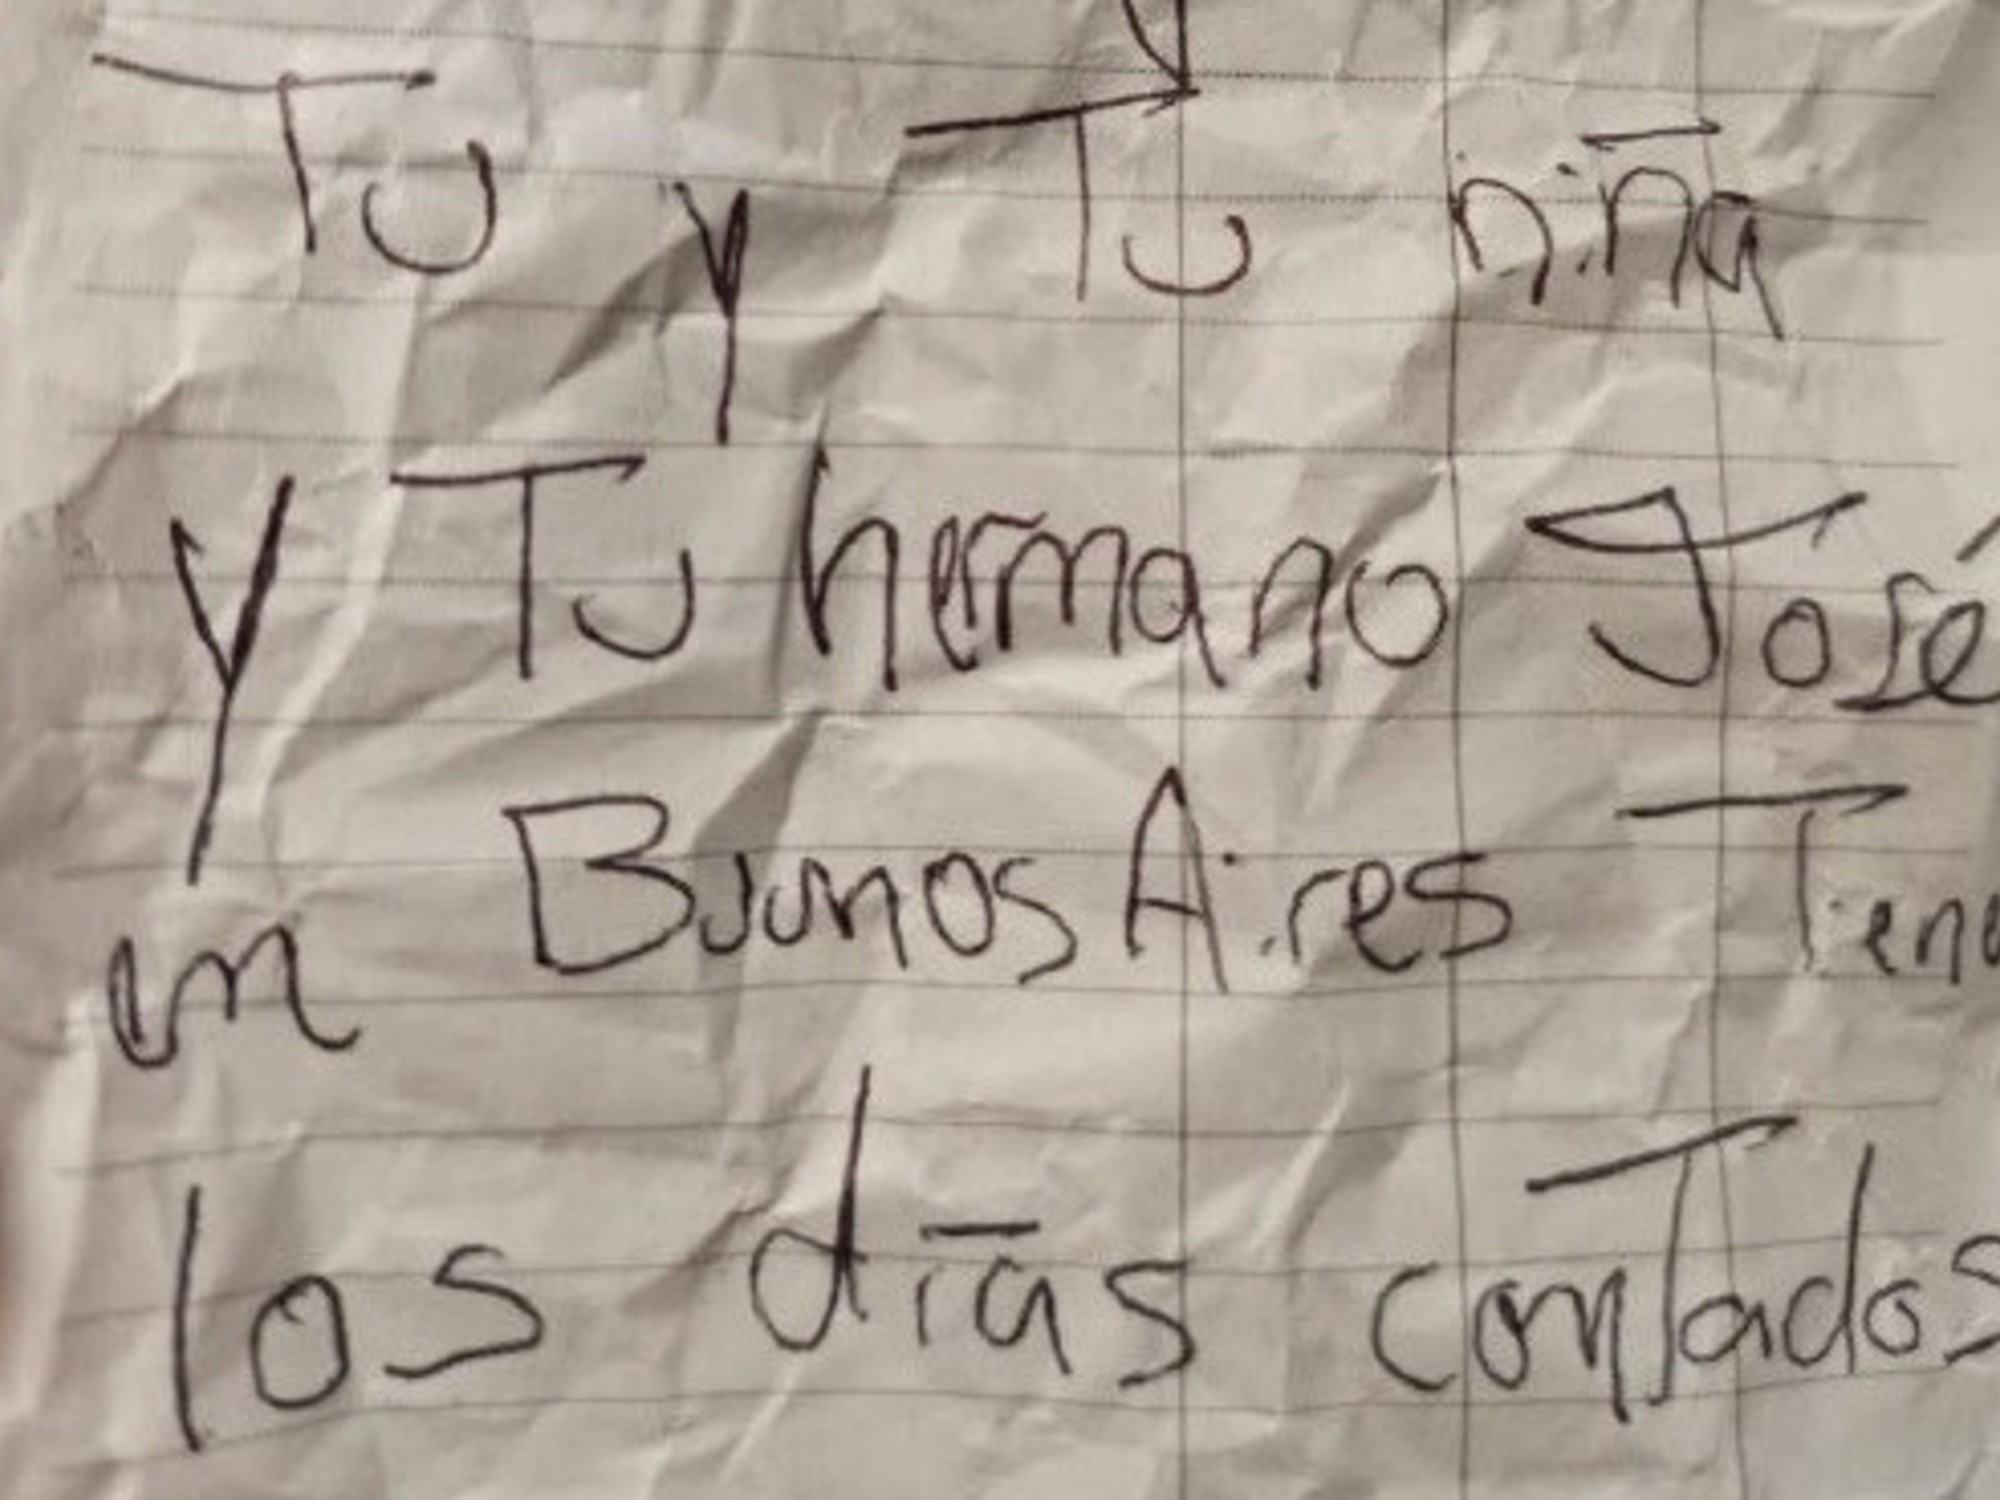 Tu y Tu niña
y Tu hermano José
en Buenos Aires Tien
los días contados